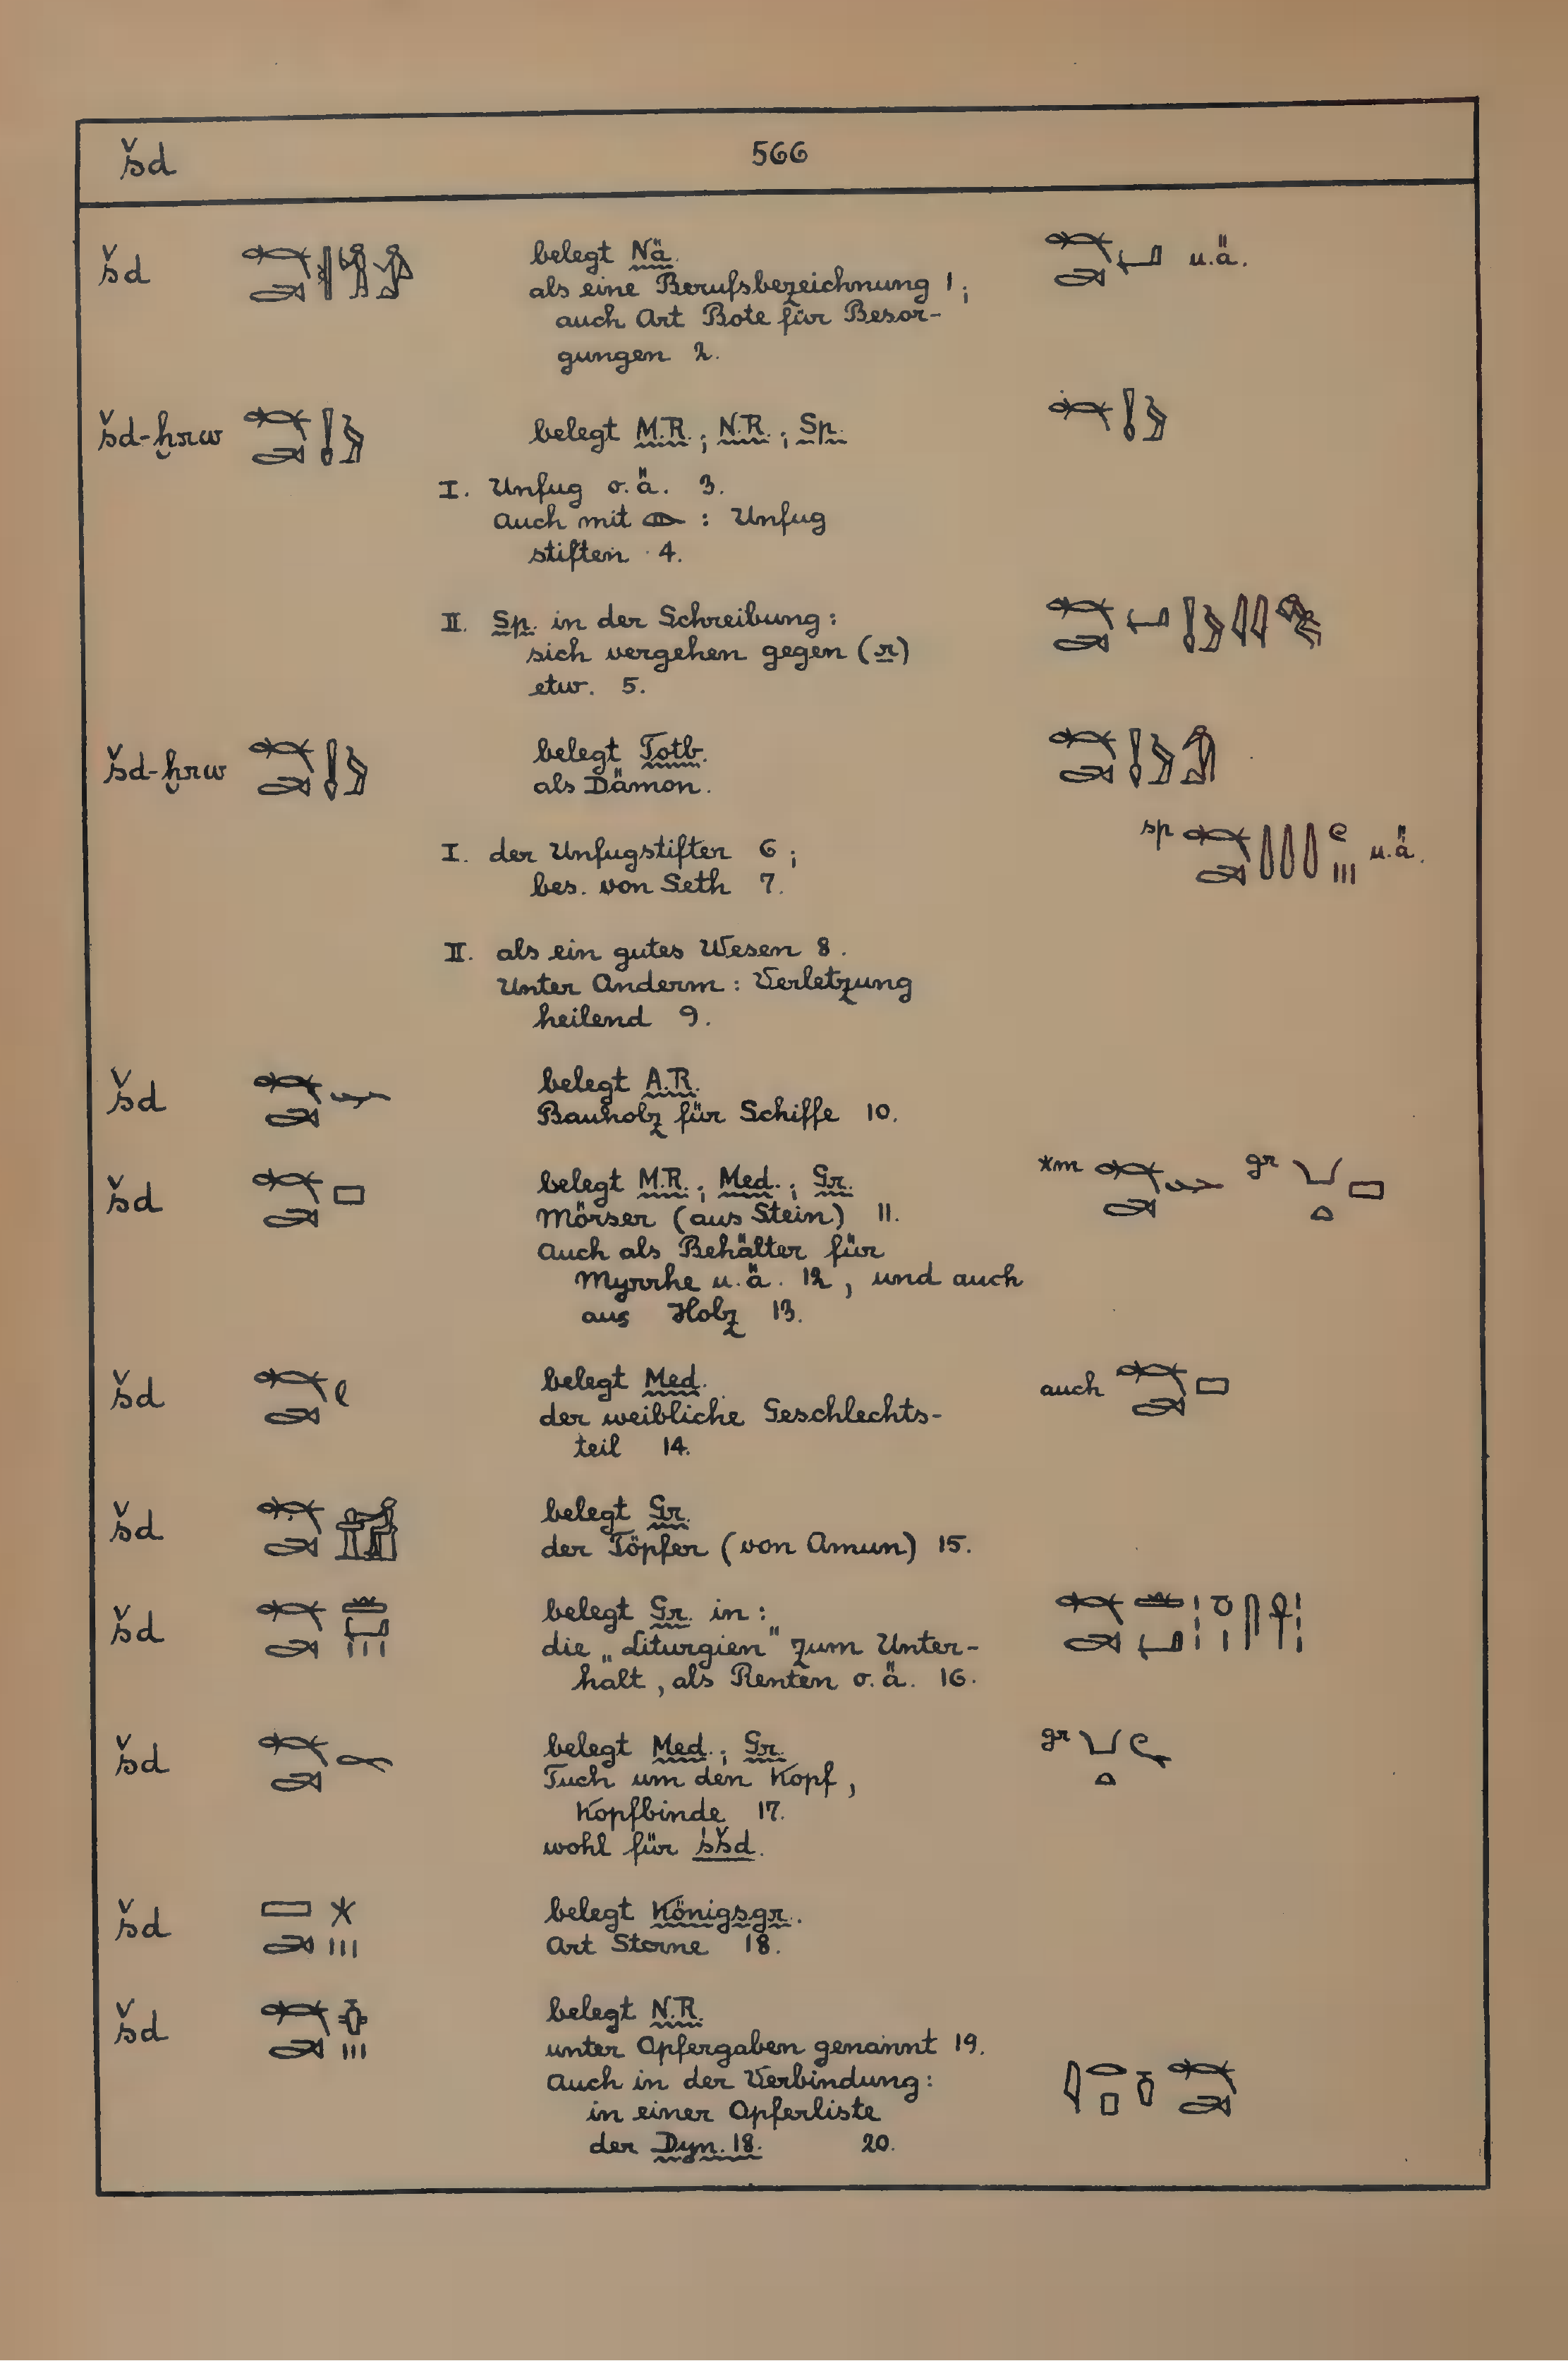 šd 566
šd belegt Nä.
als eine Berufsbezeichnung 1;
auch Art Bote für Besor-
gungen 2.
u.ä.
šd-ḫrw belegt M.R.; N.R.; Sp.
I. Unfug o.ä. 3.
Auch mit : Unfug
stiften 4.
II. Sp. in der Schreibung:
sich vergehen gegen (r)
etw. 5.
šd-ḫrw belegt Totb.
als Dämon.
I. der Unfugstifter 6;
bes. von Seth 7.
sp u.ä.
II. als ein gutes Wesen 8.
Unter Anderm: Verletzung
heilend 9.
šd belegt A.R.
Bauholz für Schiffe 10.
šd belegt M.R.; Med.; Gr. *m gr
Mörser (aus Stein) 11.
Auch als Behälter für
Myrrhe u.ä. 12, und auch
aus Holz 13.
šd belegt Med. auch
der weibliche Geschlechts-
teil 14.
šd belegt Gr.
der Töpfer (von Amun) 15.
šd belegt Gr. in:
die „Liturgien" zum Unter-
halt, als Renten o.ä. 16.
šd belegt Med.; Gr. gr
Tuch um den Kopf,
Kopfbinde 17.
wohl für śšd.
šd belegt Königsgr.
Art Sterne 18.
šd belegt N.R.
unter Opfergaben genannt 19.
Auch in der Verbindung:
in einer Opferliste
der Dyn. 18. 20.